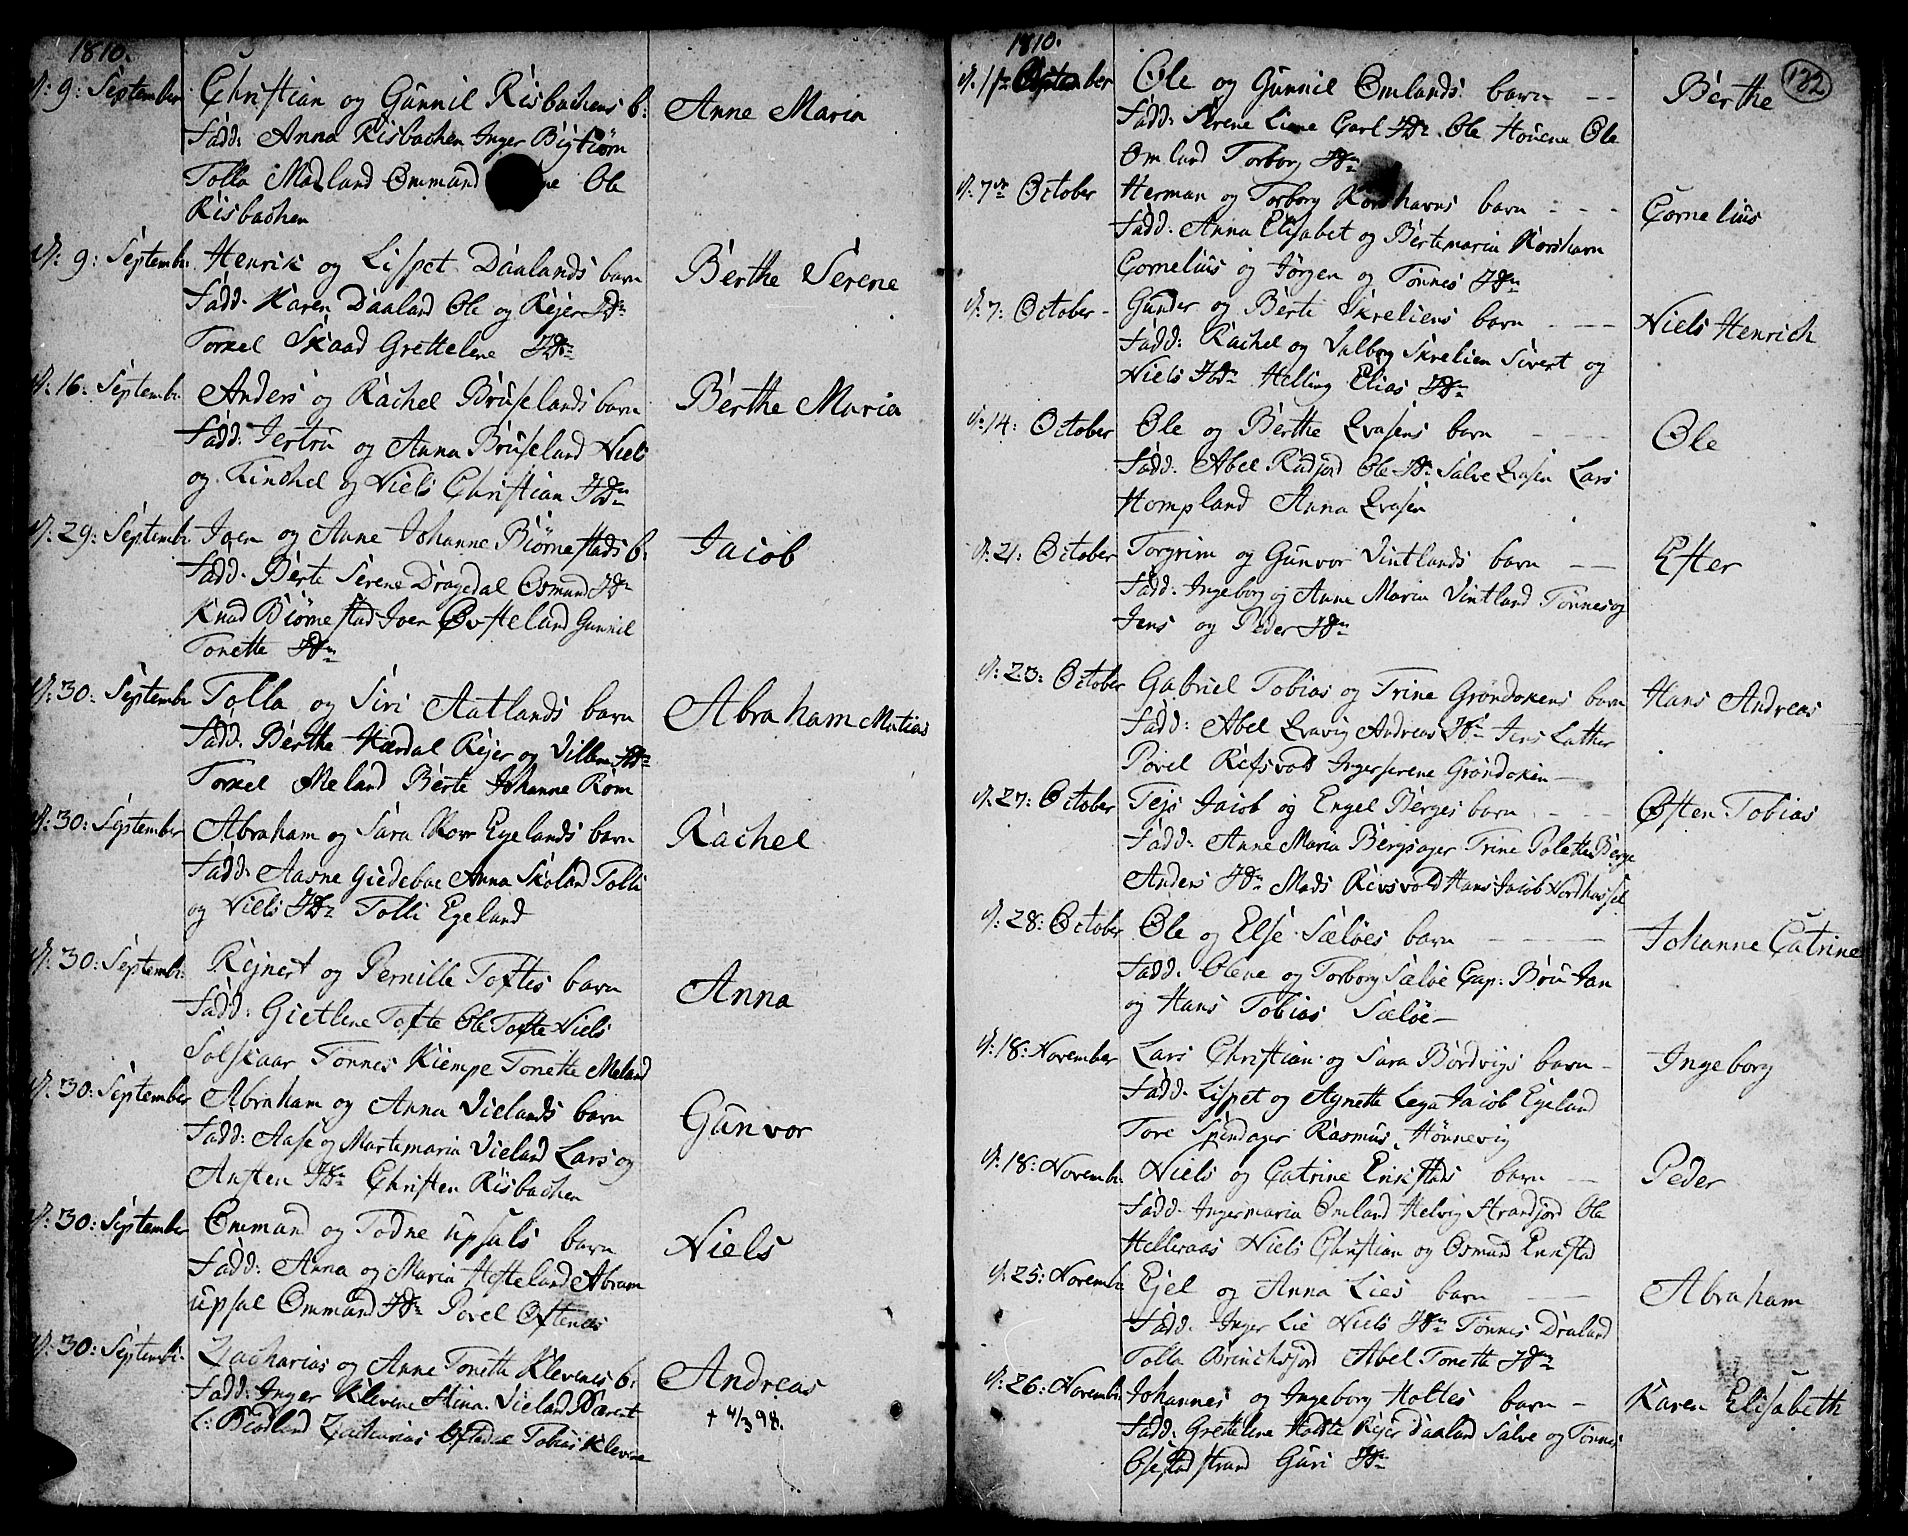 1810.
d: 9: September
Christian og Gunnil Risbachens b:
Fadd: Anna Risbachen Inger Bigtiørn
Tolla Madland Ommund Ole
Risbachen
Anne Maria
d: 9: Septembr
Henrik og Lispet Daalands barn
Fadd. Karen Daaland Ole og Rejer Jdm
Torkel Skaad Grettelene Jdm
Berthe Serene
d: 16: Septembr
Anders og Rachel Bruselands barn
Fadd: Jertru og Anna Bruseland Niels
og Tinchel og Niels Christian Jdm
Berthe Maria
d: 29: Septembr
Joen og Anne Johanne Biørnestads b:
Fadd. Berte Serene Dragedal Osmund Jdm
Knud Biørnestad Joen Øvsteland Gunnil
Tonette Jdm
Jacob
d: 30: Septembr
Tolla og Siri Aatlands barn
Fadd. Berthe Hærdal Rejer og Villem Jdm
Torkel Meland Berte Johanne Rom
Abraham Matias
d: 30: September
Abraham og Sara Kor Egelands barn
Fadd. Aasne Giedeboe Anna Skoland Tolli
og Niels Jdm Tolli Egeland
Rachel
d: 30: Septembr:
Rejnert og Pernille Toftes barn
Fadd: Gietlene Tofte Ole Tofte Niels
Solskaar Tønnes Kiempe Tonette Meland
Anna
d: 30: September
Abraham og Anna Vielands barn
Fadd: Aase og Martemaria Vieland Lars og
Ansten Jdm Christen Risbachen
Gunvor
d: 30: September
Ommund og Todne Upsals barn
Fadd: Anna og Maria Hesteland Abram
Upsal Ommund Jdm Povel Oftenes
Niels
d: 30: Septembr:
Zacharias og Anne Tonette Klevenes b:
Fadd: Inger Klevene Stina Vieland Barent
L: Biodland Zacharias Oftedal Tobias Klevene
Andreas
+ 4/3 98.
1810.
132
Ole og Gunnil Omlands barn
Fadd: Serene Line Carl Jdm Ole Houene Ole
Omland Torborg Jdm
Berthe
d. 7de October
Herman og Torborg Korshavns barn
Fadd. Anna Elisabet og Bertemaria Korshavn
Cornelius og Jørgen og Tønnes Jdm
Cornelius
d. 7: October
Gunder og Berte Skreliens barn
Fadd: Rachel og Valborg Skrelien Sivert og
Niels Jdm Helling Elias Jdm
Niels Henrich
d. 14: October
Ole og Berthe Qvasens barn
Fadd. Abel Rudjord Ole Jdm Salve Qvasen Lars
Hompland Anna Qvasen
Ole
d: 21: October
Torgrim og Gunvor Vintlands barn
Fadd: Ingeborg og Anne Maria Vintland Tønnes og
Jens og Peder Jdm
Ester
d: 23: October
Gabriel Tobias og Trine Grøndokens barn
Fadd: Abel Qvavig Andreas Jdm Jens Luther
Povel Refsvold Ingerserene Grøndoken
Hans Andreas
d. 27: October
Tejs Jacob og Engel Berges barn
Fadd: Anne Maria Bergsager Trine Polette Berge
Anders Jdm Mads Rivsvold Hans Jacob Nordhassel
Østen Tobias
d: 28: October
Ole og Else Seløes barn
Fadd. Olene og Torborg Seløe Cap: Bøu Jan
og Hans Tobias Seløe
Johanne Catrine
d: 18: November
Lars Christian og Sara Bordvigs barn
Fadd. Lispet og Agnette Lega Jacob Egeland
Tore Spindager Rasmus Hønnevig
Ingeborg
d: 18: Novembr.
Niels og Catrine Erikstads barn
Fadd. Ingermaria Omland Helvig Strandjord Ole
Helleraas Niels Christian og Osmund Erikstad
Peder
d: 25: Novembr
Ejel og Anna Lies barn
Fadd. Inger Lie Niels Jdm Tønnes Draland
Tolla Brinchsjord Abel Tonette Jdm
Abraham
d: 26: Novembr.
Johannes og Ingeborg Holtes barn
Fadd. Grettelene Holdte Rejer Daaland Salve og Tønnes
Osestadstrand Guri Jdm
Karen Elisabeth